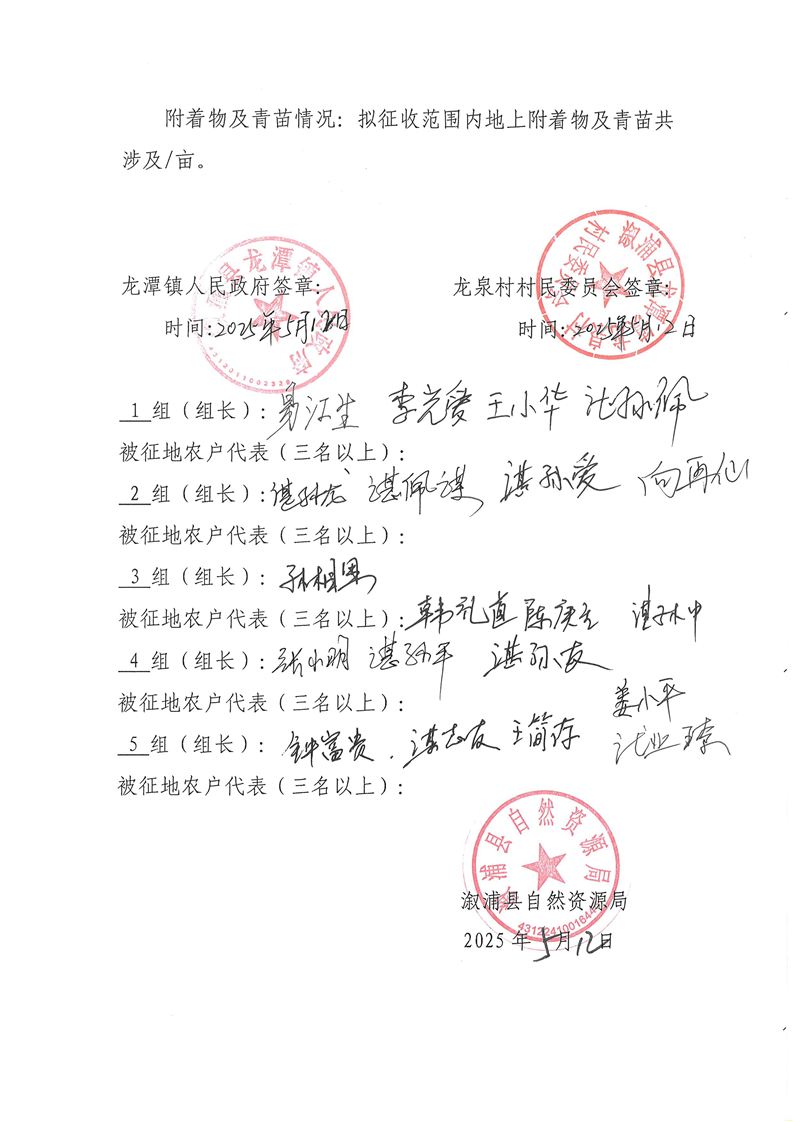 附着物及青苗情况：拟征收范围内地上附着物及青苗共
涉及/亩。
龙潭镇人民政府签章：
龙泉村村民委员会签章：
时间：2025年5月12日
时间：2025年5月12日
1 组（组长）： 李光爱 王小华
被征地农户代表（三名以上）：
2 组（组长）：谌孙龙 谌佩谋 谌孙爱 向再仙
被征地农户代表（三名以上）：
3 组（组长）：孙相思
被征地农户代表（三名以上）：韩礼直 陈庚生 谌孙中
4 组（组长）：张小明 谌孙平 谌孙友
被征地农户代表（三名以上）：
姜小平
5 组（组长）：钟富贵．谌志友 王简存
被征地农户代表（三名以上）：
溆浦县自然资源局
4312241001644
溆浦县自然资源局
2025年5月12日